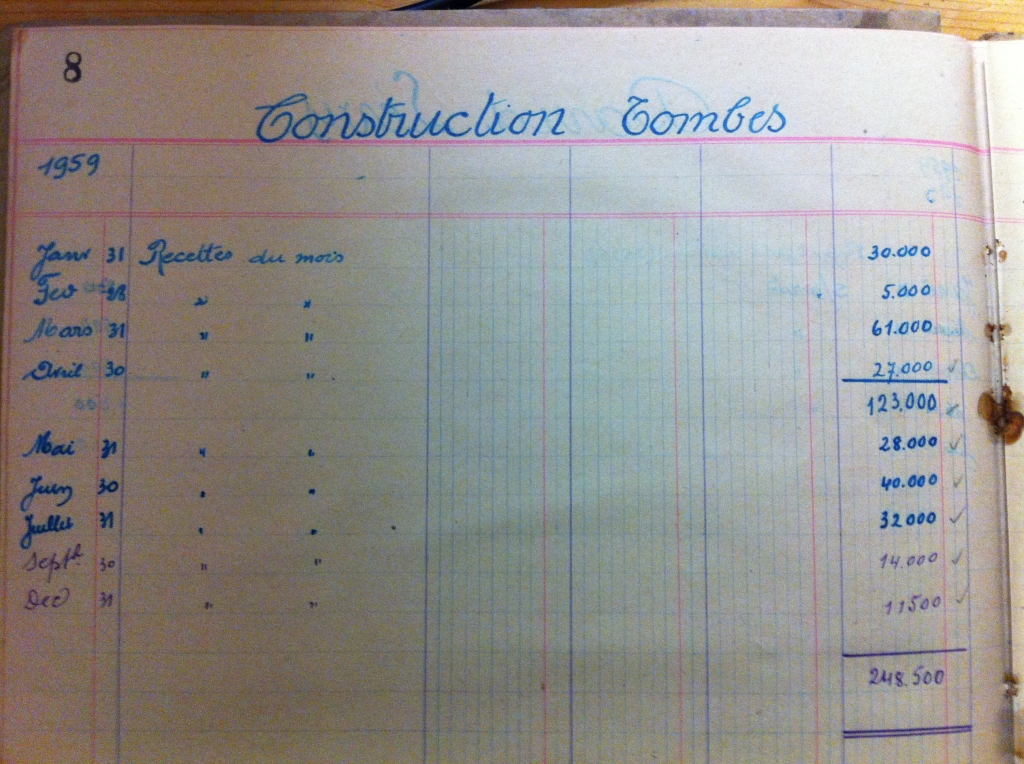 8
Construction Tombes
1959
Janv 31 Recettes du mois 30.000
Fev 28 " " 5.000
Mars 31 " " 61.000
Avril 30 " " 27.000 ✓
123.000
Mai 31 " " 28.000 ✓
Juin 30 " " 40.000 ✓
Juillet 31 " " 32000 ✓
Septb 30 " " 14.000 ✓
Dec 31 " " 11500 ✓
248.500